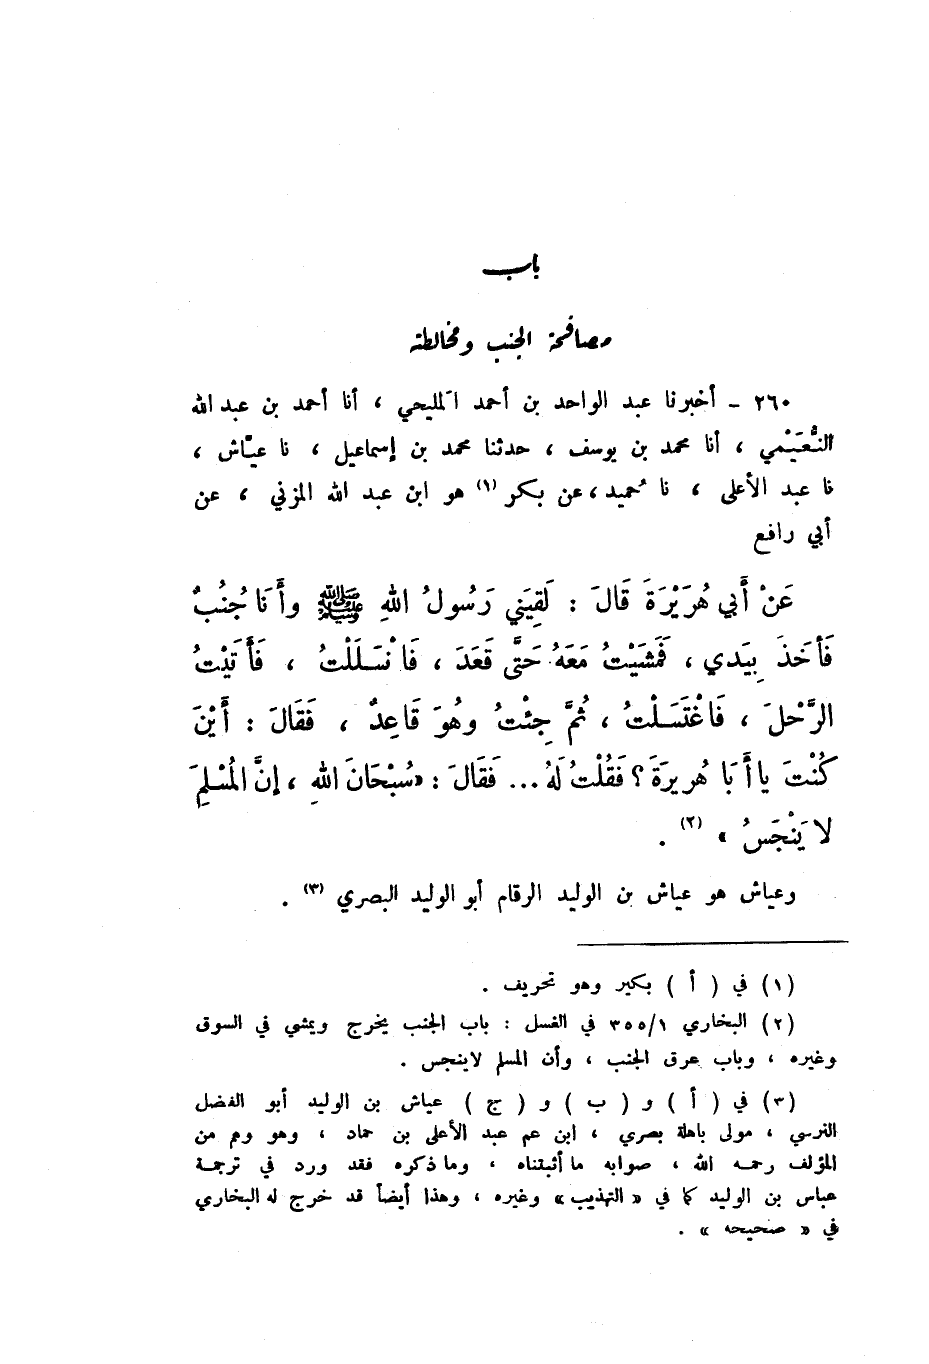 باب
مصافحة الجنب ومخالطته
٢٦٠ - أخبرنا عبد الواحد بن أحمد المليحي ، أنا أحمد بن عبد الله
النُّعَيْمي ، أنا محمد بن يوسف ، حدثنا محمد بن إسماعيل ، نا عيّاش ،
نا عبد الأعلى ، نا حُميد ، عن بكر (١) هو ابن عبد الله المزني ، عن
أبي رافع
عَنْ أَبي هُرَيْرَةَ قَالَ : لَقِيَني رَسُولُ اللهِ ﷺ وأَنا جُنُبٌ
فَأخَذَ بِيَدي ، فَمَشَيْتُ مَعَهُ حَتَّى قَعَدَ ، فَانْسَلَلْتُ ، فَأَتَيْتُ
الرَّحْلَ ، فَاغْتَسَلْتُ ، ثُمَّ جِئْتُ وهُوَ قَاعِدٌ ، فَقَالَ : أَيْنَ
كُنْتَ يا أَبَا هُريرَةَ ؟ فَقُلْتُ لَهُ ... فَقَالَ : «سُبْحَانَ اللهِ ، إنَّ الْمُسْلِمَ
لا يَنْجَسُ » (٢) .
وعياش هو عياش بن الوليد الرقام أبو الوليد البصري (٣) .
(١) في ( أ ) بكير وهو تحريف .
(٢) البخاري ٣٥٥/١ في الغسل : باب الجنب يخرج ويمشي في السوق
وغيره ، وباب عرق الجنب ، وأن المسلم لاينجس .
(٣) في ( أ ) و ( ب ) و ( ج ) عياش بن الوليد أبو الفضل
النرسي ، مولى باهلة بصري ، ابن عم عبد الأعلى بن حماد ، وهو وهم من
المؤلف رحمه الله ، صوابه ما أثبتناه ، وما ذكره فقد ورد في ترجمة
عباس بن الوليد كما في « التهذيب » وغيره ، وهذا أيضاً قد خرج له البخاري
في « صحيحه » .